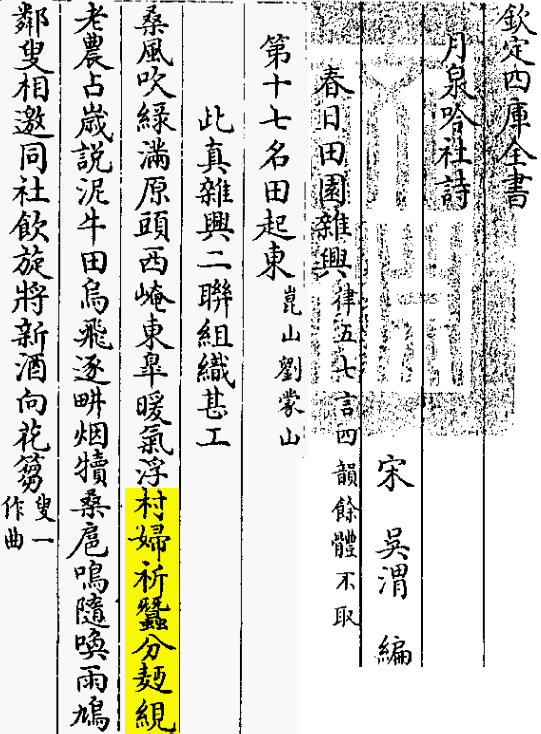 欽定四庫全書
月泉吟社詩
宋 吳渭 編
春日田園雜興律五七言四韻餘體不取
第十七名田起東崑山劉蒙山
此真雜興二聯組織甚工
桑風吹綠滿原頭西崦東臯暖氣浮村婦祈蠶分麪繭
老農占歲說泥牛田烏飛逐畊烟犢桑扈鳴隨喚雨鳩
鄰叟相邀同社飲旋將新酒向花篘叟一作曲